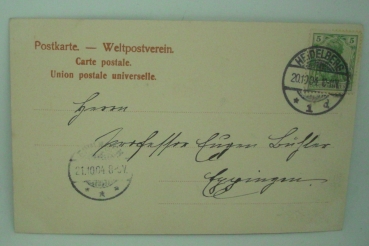 Postkarte. — Weltpostverein.
Carte postale.
Union postale universelle.
5 5
HEIDELBERG
20.10.04.
* 1 d
Herrn
Professor Eugen Bühler
Eppingen.
21.10.04. 8-9V.